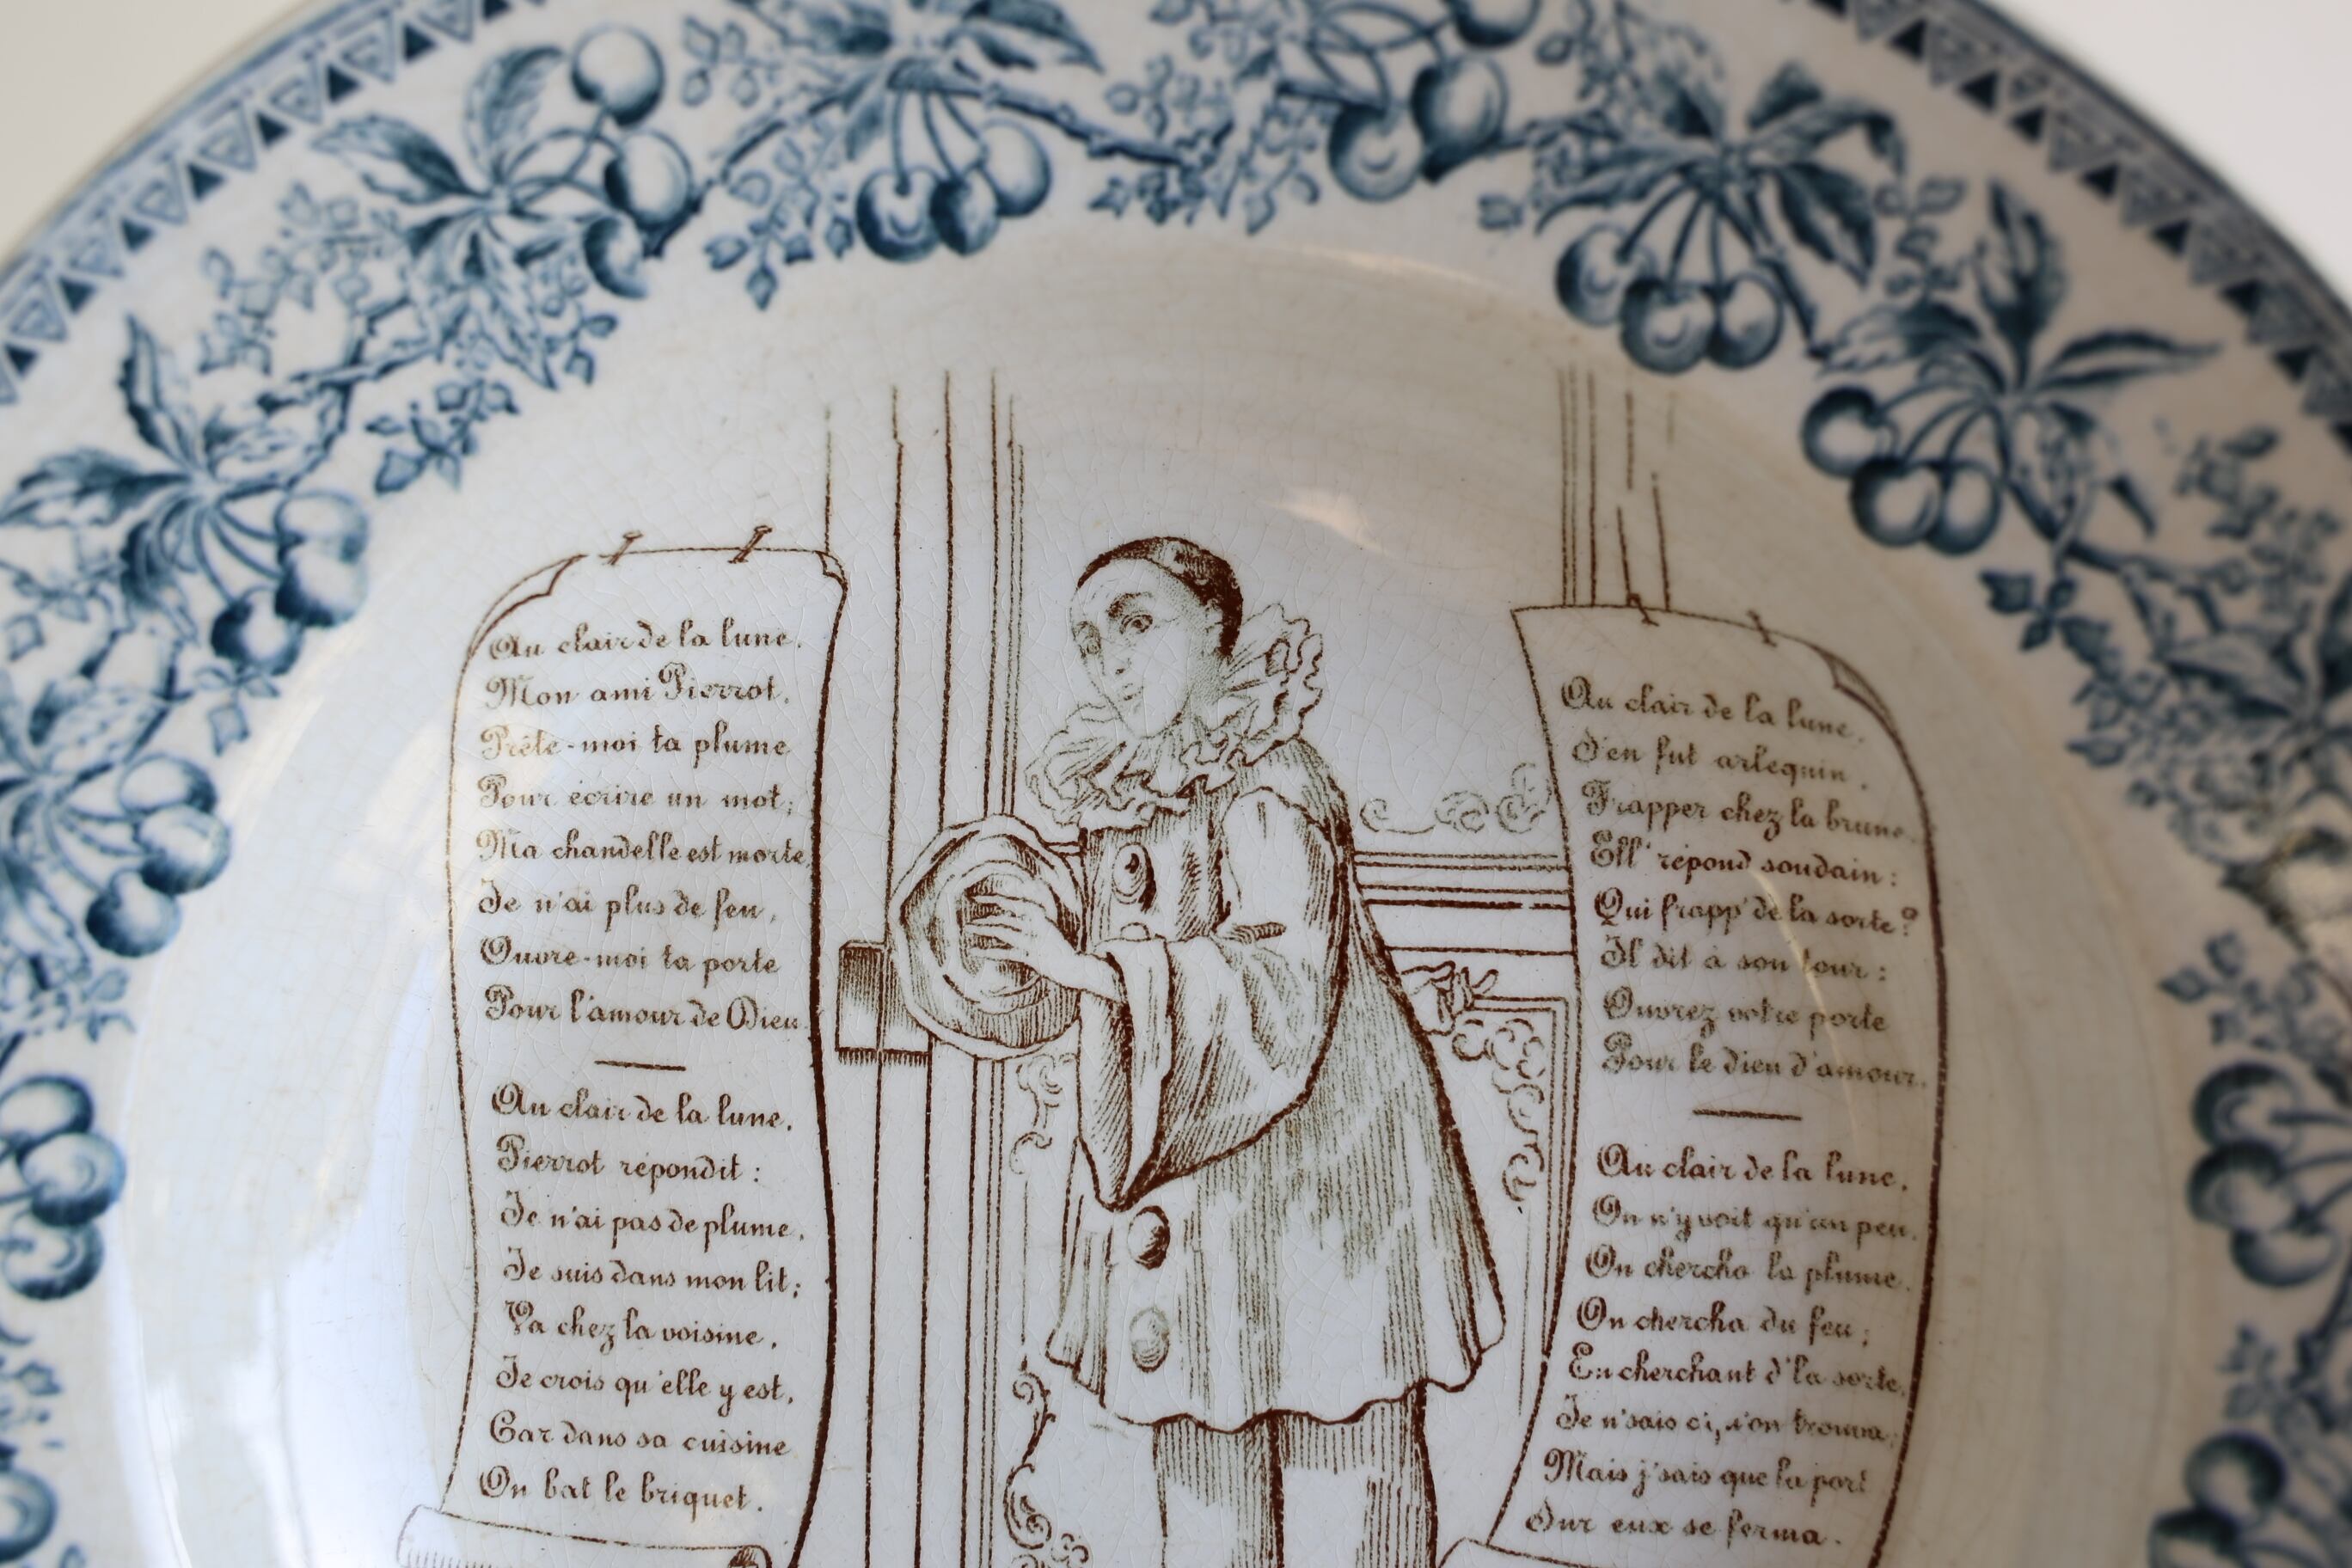 Au clair de la lune,
Mon ami Pierrot,
Prête-moi ta plume
Pour écrire un mot;
Ma chandelle est morte,
Je n'ai plus de feu,
Ouvre-moi ta porte
Pour l'amour de Dieu.
Au clair de la lune,
Pierrot répondit :
Je n'ai pas de plume,
Je suis dans mon lit;
Va chez la voisine,
Je crois qu'elle y est,
Car dans sa cuisine
On bat le briquet.
Au clair de la lune,
S'en fut arlequin,
Frapper chez la brune,
Ell' répond soudain :
Qui frapp' de la sorte ?
Il dit à son tour :
Ouvrez votre porte
Pour le dieu d'amour.
Au clair de la lune,
On n'y voit qu'un peu,
On chercha la plume,
On chercha du feu;
En cherchant d'la sorte,
Je n'sais c'qu'on trouva;
Mais j'sais que la port'
Sur eux se ferma.